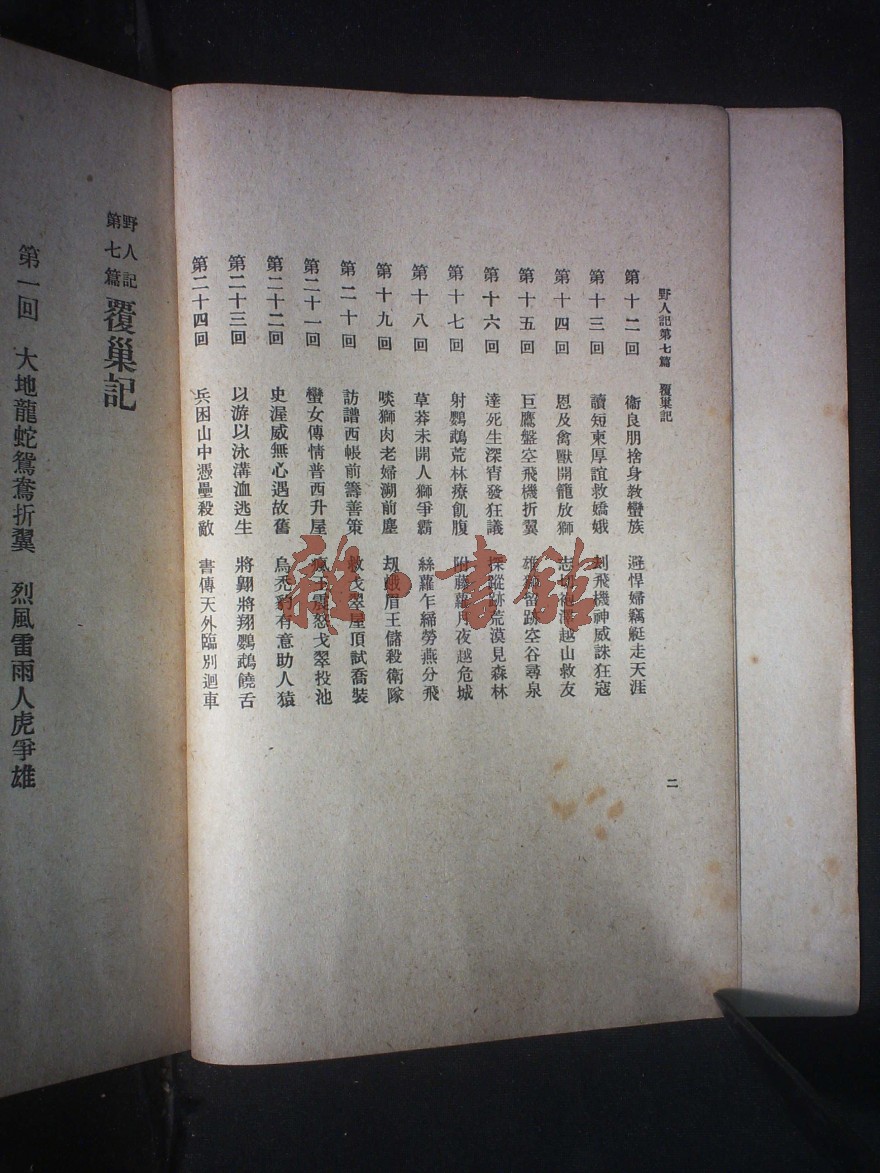 野人記第七篇 覆巢記
第十二回 衞良朋捨身教蠻族 避悍婦竊艇走天涯
第十三回 讀短柬厚誼救嬌娥 刦飛機神威誅狂寇
第十四回 恩及禽獸開籠放獅 志切袍澤越山救友
第十五回 巨鷹盤空飛機折翼 雄獅留跡空谷尋泉
第十六回 達死生深宵發狂議 探蹤跡荒漠見森林
第十七回 射鸚鵡荒林療飢腹 附藤蘿月夜越危城
第十八回 草莽未開人獅爭霸 絲蘿乍締勞燕分飛
第十九回 啖獅肉老婦溯前塵 刧峨眉王儲殺衛隊
第二十回 訪譜西帳前籌善策 救戈翠屋頂試喬裝
第二十一回 蠻女傳情普西升屋 瘋王震怒戈翠投池
第二十二回 史渥威無心遇故舊 烏禿豹有意助人猿
第二十三回 以游以泳溝洫逃生 將翱將翔鸚鵡饒舌
第二十四回 兵困山中憑壘殺敵 書傳天外臨別迴車
二
野人記
第七篇 覆巢記
第一回 大地龍蛇鴛鴦折翼 烈風雷雨人虎爭雄
雜·書館